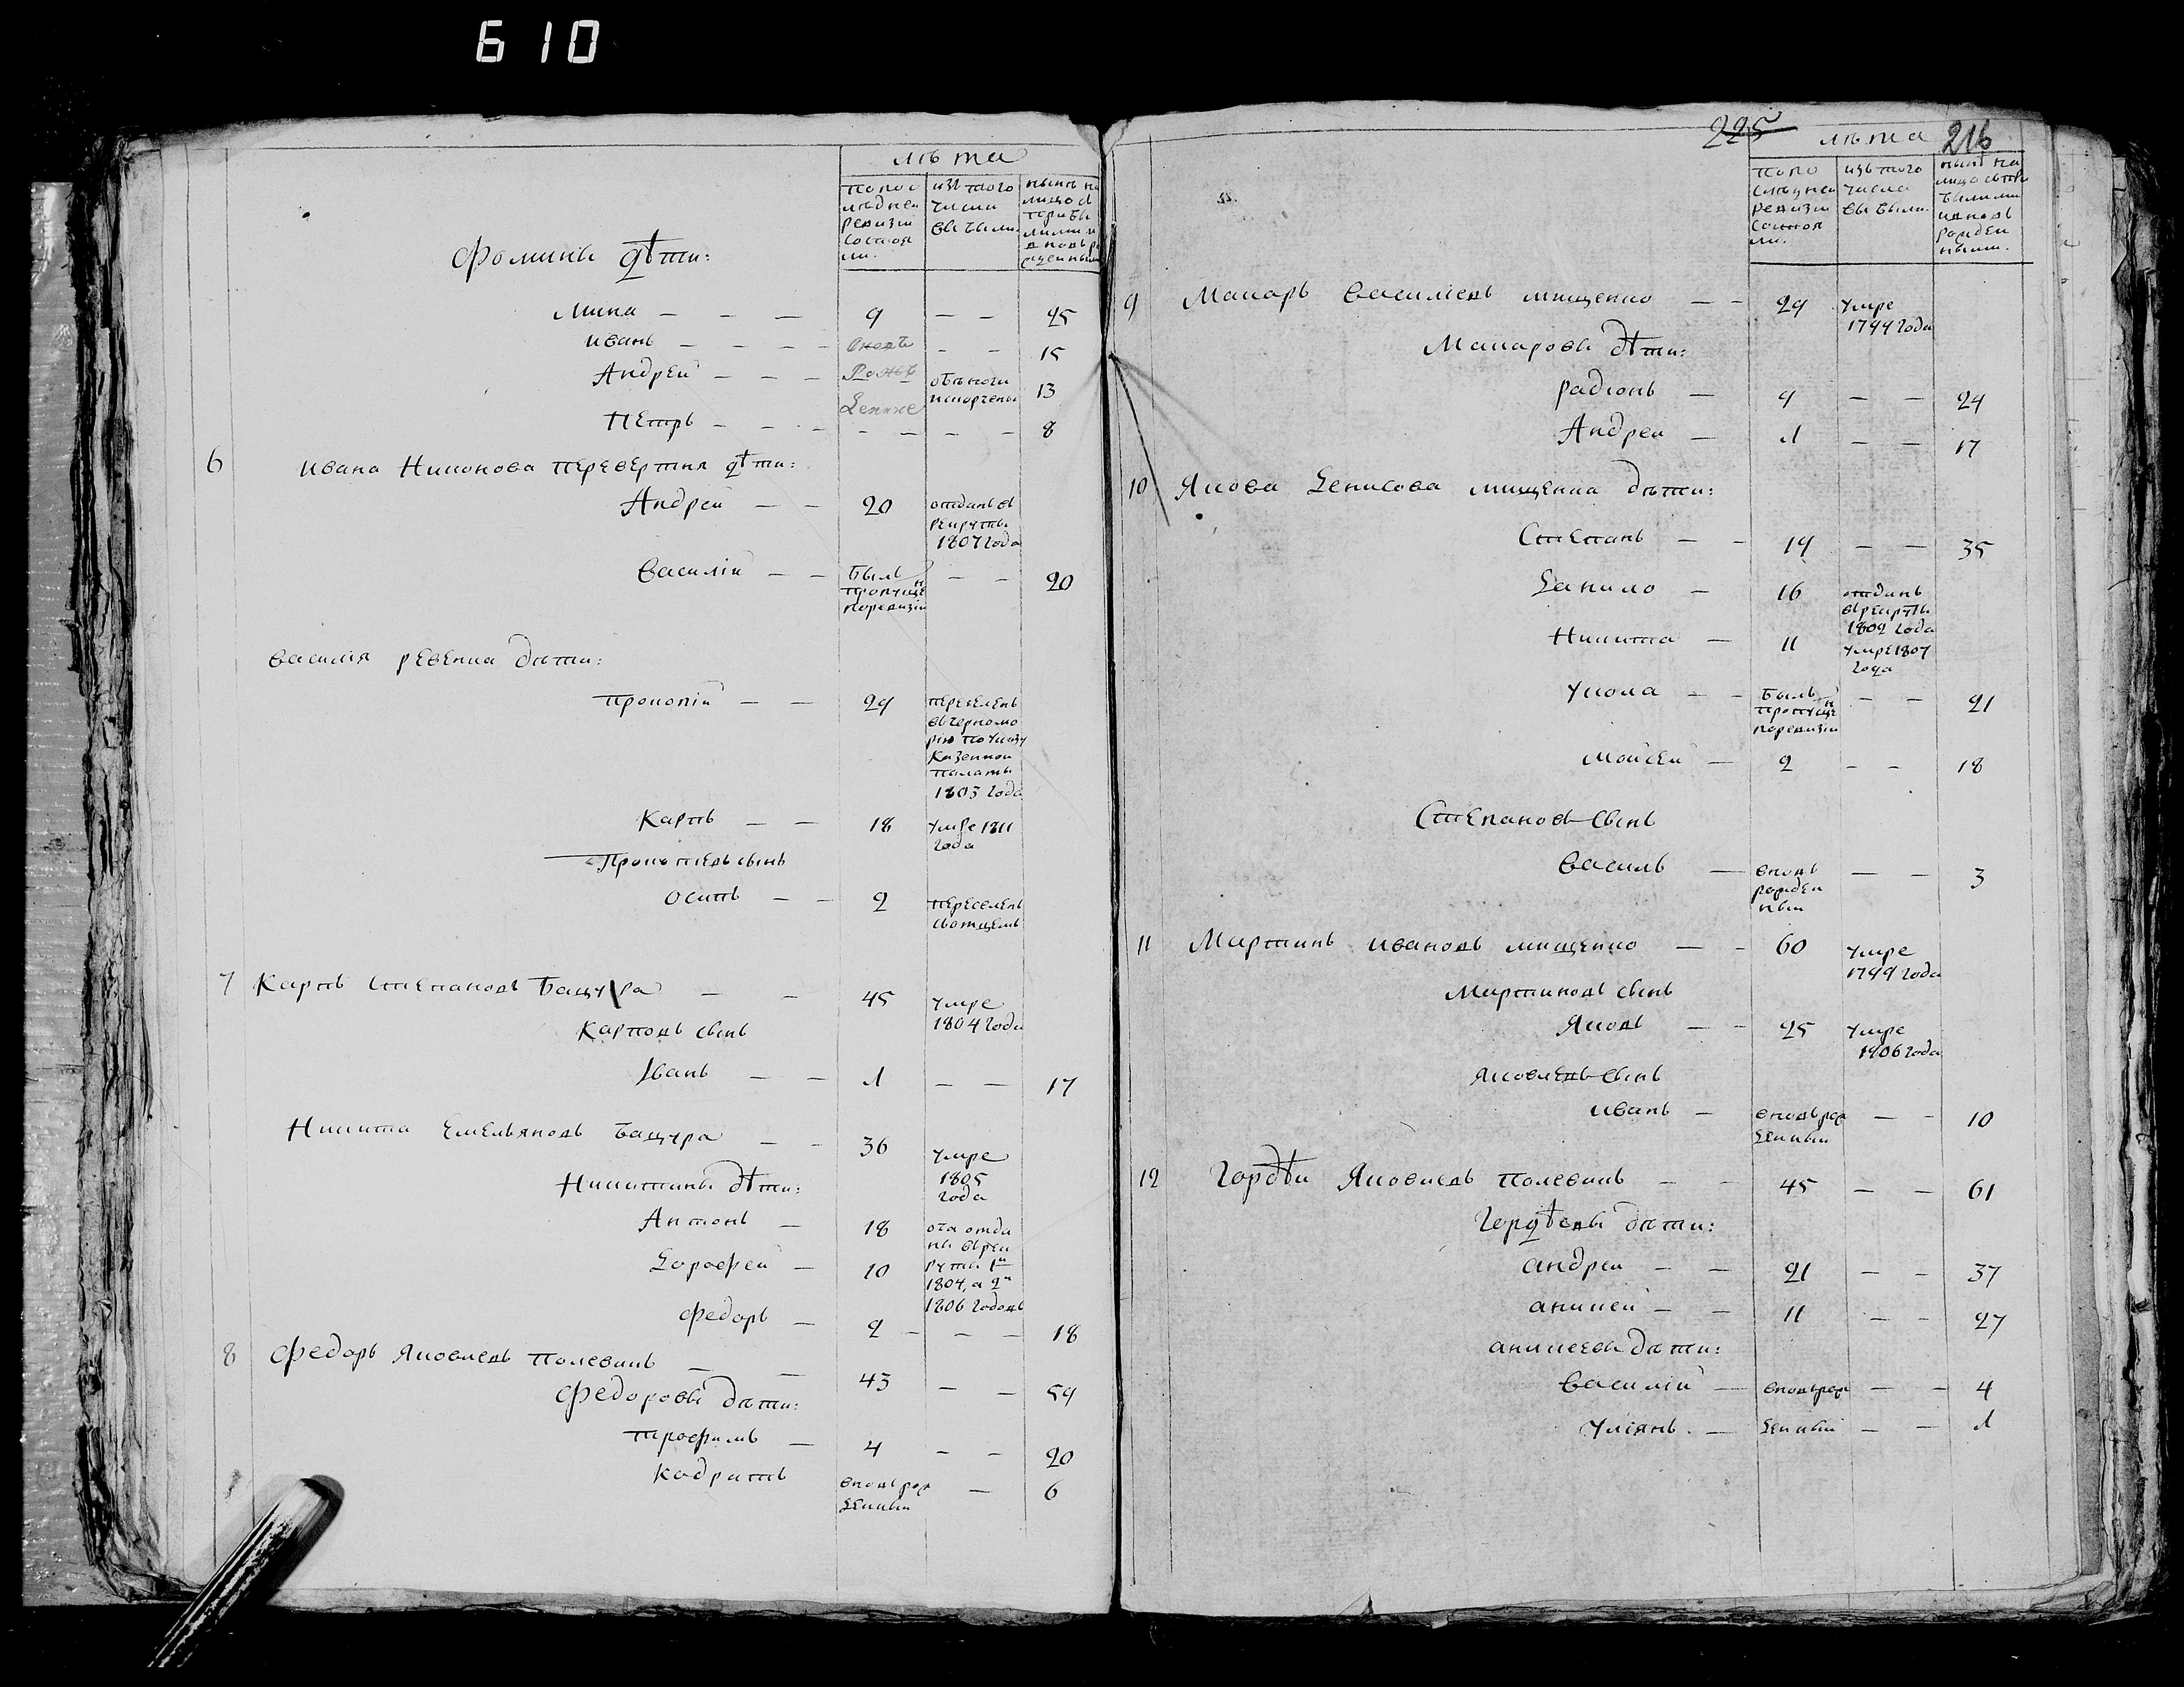 610
лѣта
по пос
лѣдней
ревизіи
состоя
ли.
изъ того
числа
выбыли.
нынѣ на
лицо с
прибы
лыми и
вновь ро
жденными
Фомины дѣти:
Мина — — — 9 — — 25
иванъ — — — вновь — — 15
Андрей — — — Рожд обѣ ноги испорчены 13
Петръ — — — денные — — 8
6 ивана Никонова перевертня дѣти:
Андреи — — 20 отданъ въ
рекруты
1807 года
василій — — былъ
пропущен
по ревизіи — — 20
василія ревенка дѣти:
прокопій — — 29 переселенъ
въ черномо
рію по указу
Казенной
палаты
1803 года
Карпъ — — 18 умре 1811
года
Прокопіевъ сынъ
осипъ — — 2 переселенъ
съ отцемъ
7 Карпъ Степановъ Бацура — — 45 умре
1804 года
Карповъ сынъ
Іванъ — — 1 — — 17
Никита Емельяновъ Бацура — — 36 умре
1805
года
Никитины дѣти:
Антонъ — 18 оба отда
ны въ рек
Дорофеи — 10 руты 1й
1804, а 2й
1806 годовъ
Федоръ — 2 — — — 18
8 Федоръ Яковлевъ Полевикъ — — 43 — — 59
Федоровы дѣти:
трофимъ — 4 — — 20
Кодратъ вновь рож
денный — 6
225
216
лѣта
по по
слѣдней
ревизіи
состоя
ли.
изъ того
числа
выбыли.
нынѣ на
лицо съ при
былыми
и вновь
рожден
ными.
9 Макаръ василіевъ мищенко — — 29 умре
1799 года
Макаровы дѣти:
радіонъ — 9 — — 24
Андреи — 1 — — 17
10 Якова Денисова мищенка дѣти:
Степанъ — — 19 — — 35
Данило — 16 отданъ
въ рекруты
1802 года
Никита — 11 умре 1807
года
укола — — былъ
пропущен
по ревизіи — — 21
Мойсей — 2 — — 18
Степановъ сынъ
василь — вновь
рожден
ный — — 3
11 Мартинъ ивановъ мищенко — — 60 умре
1799 года
Мартиновъ сынъ
Яковъ — — 25 умре
1806 года
Яковлевъ сынъ
иванъ — вновь рож
денный — — 10
12 Гордѣи Яковлевъ полевикъ — — 45 — — 61
Гордѣевы дѣти:
андреи — — 21 — — 37
аникеи — — 11 — — 27
аникеевы дѣти:
василій — вновь рож — — 4
уліянъ. — денный — — 1